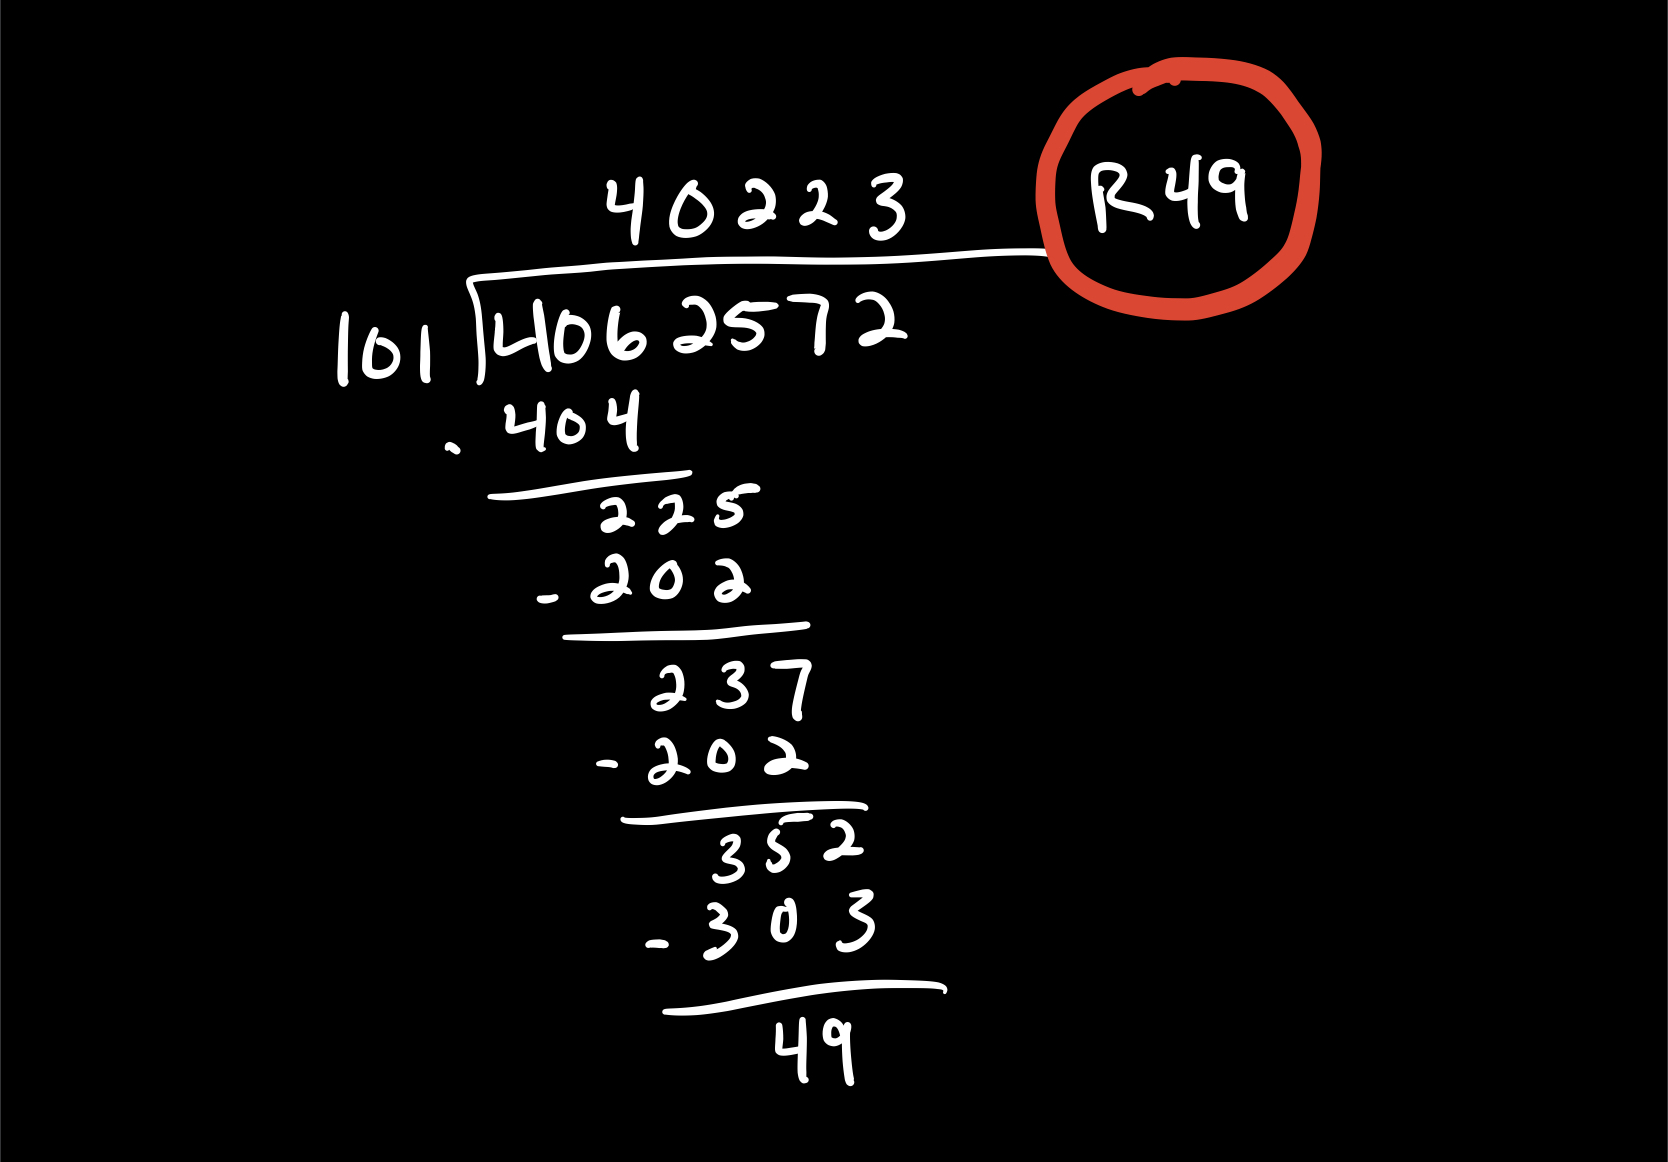 40223 R49
101 4062572
. 404
225
- 202
237
- 202
352
- 303
49